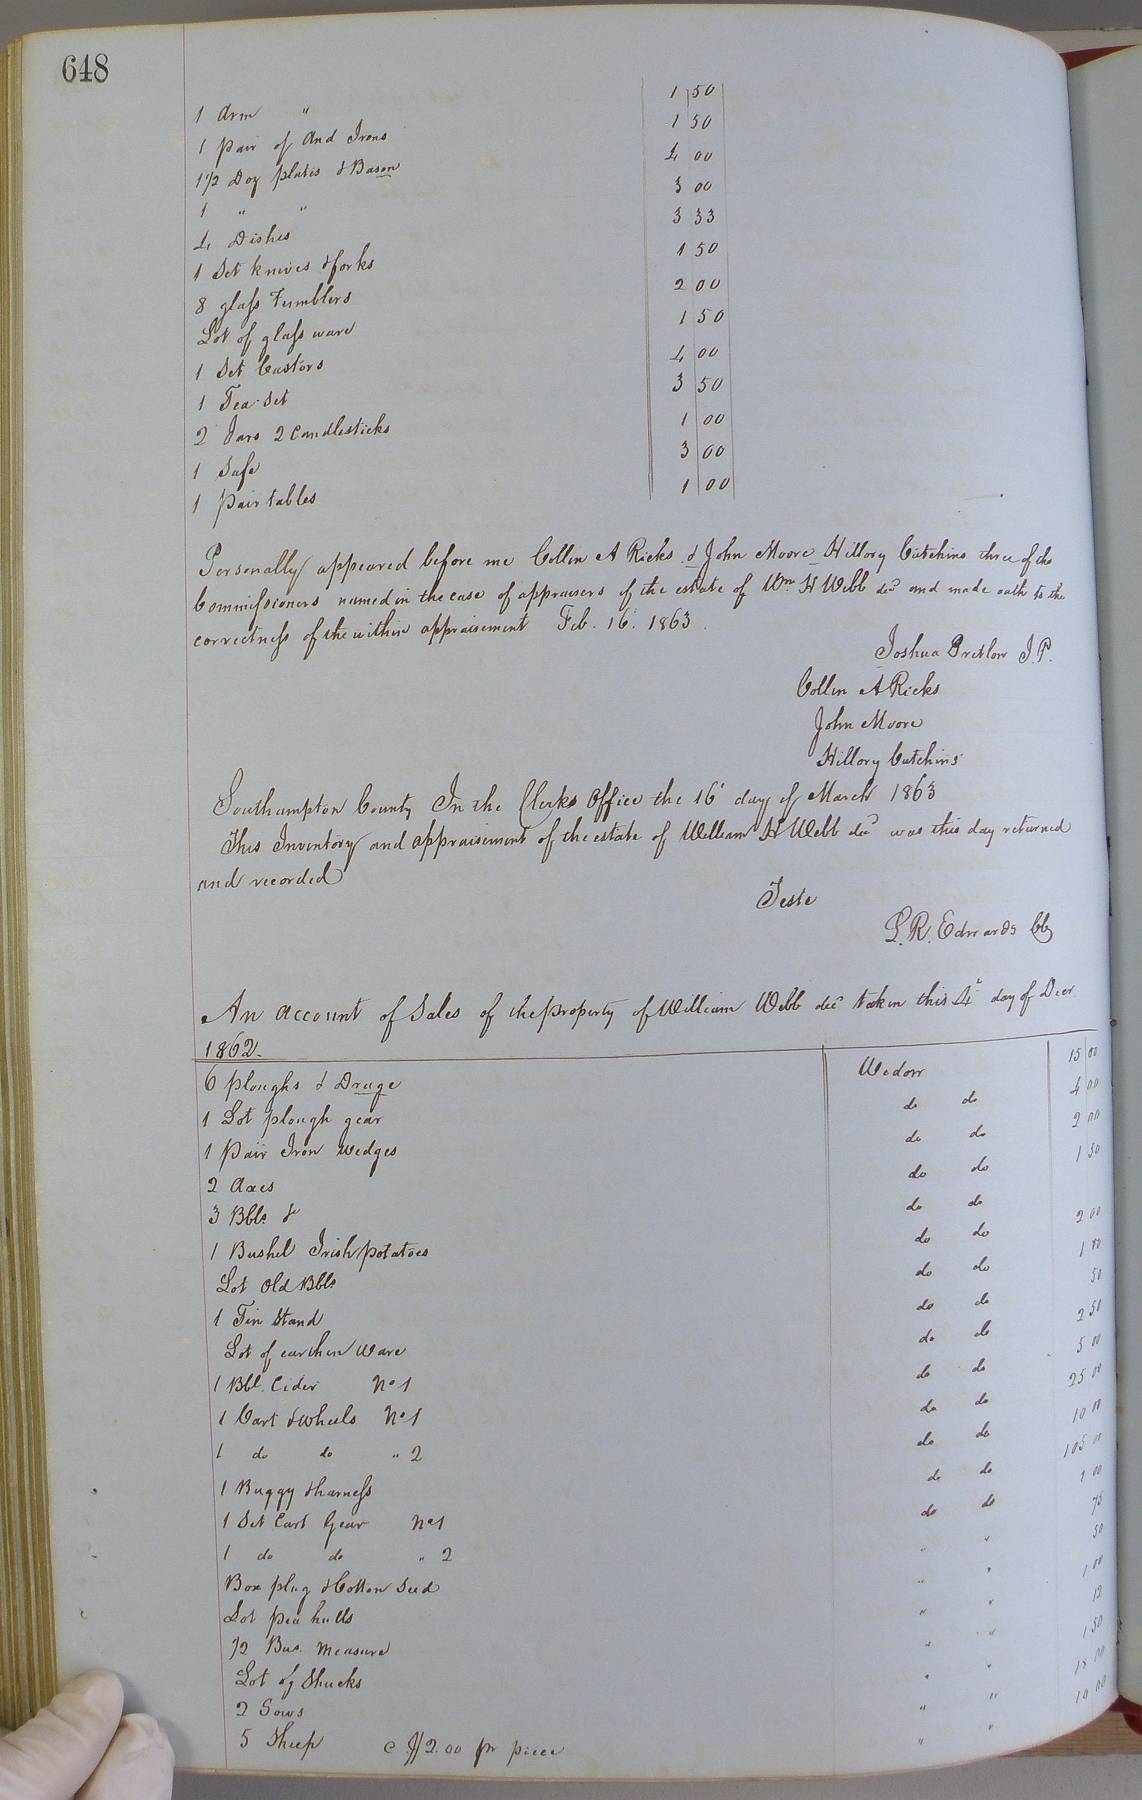 648
1 Arm " 1 50
1 pair of And Irons 1 50
1 1/2 Doz plates & Bason 4 00
1 " " 3 00
4 Dishes 3 33
1 Set knives & forks 1 50
8 glass Tumblers 2 00
Lot of glass ware 1 50
1 Set Castors 4 00
1 Tea Set 3 50
2 Jars 2 Candlesticks 1 00
1 Safe 3 00
1 pair tables 1 00
Personally appeared before me Collin A Ricks & John Moore Hillory Cutchins three of the
Commissioners named in the case of appraisers of the estate of Wm H Webb decd and made oath to the
correctness of the within appraisement Feb. 16. 1863.
Joshua Pretlow J.P.
Collin A Ricks
John Moore
Hillory Cutchins
Southampton County In the Clerks Office the 16 day of March 1863
This Inventory and appraisement of the estate of William H Webb decd was this day returned
and recorded
Teste
L.R. Edwards Clk
An account of Sales of the property of William Webb decd taken this 4 day of Decr
1862.
6 ploughs & Druge Wedow 15 00
1 Lot plough gear do do 4 00
1 pair Iron wedges do do 2 00
2 Axes do do 1 50
3 Bbls & do do
1 Bushel Irish potatoes do do 2 00
Lot old Bbls do do 1 00
1 Tin Stand do do 50
Lot of earthen ware do do 2 50
1 Bbl. Cider No 1 do do 5 00
1 Cart & wheels No 1 do do 25 00
1 do do " 2 do do 10 00
1 Buggy & harness do do 105 00
1 Set Cart Gear No 1 do do 1 00
1 do do " 2 " " 75
Box plug & Cotton Seed " " 50
Lot pea hulls " " 1 00
1/2 Bus. measure " " 12
Lot of Shucks " " 1 50
2 Sows " " 18 00
5 Sheep @ $2.00 pr piece " " 10 00